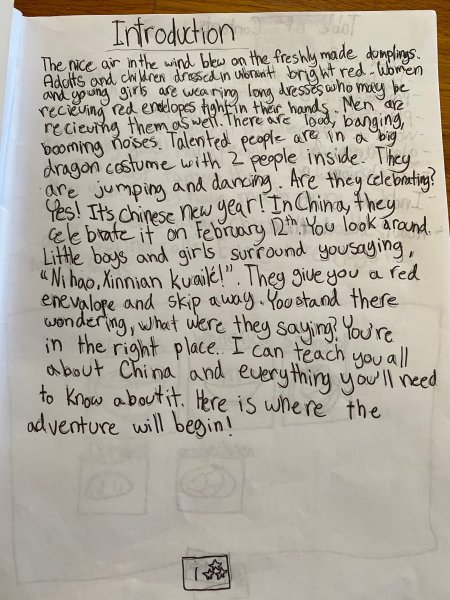 Introduction
The nice air in the wind blew on the freshly made dumplings.
Adults and children dressed in vibrant bright red. Women
and young girls are wearing long dresses who may be
recieving red envelopes tight in their hands. Men are
recieving them as well. There are loud, banging,
booming noises. Talented people are in a big
dragon costume with 2 people inside. They
are jumping and dancing. Are they celebrating?
Yes! It's Chinese new year! In China, they
celebrate it on February 12th. You look around.
Little boys and girls surround you saying,
"Ni hao, Xinnian kuailé!". They give you a red
enevalope and skip away. You stand there
wondering, what were they saying? You're
in the right place. I can teach you all
about China and everything you'll need
to know about it. Here is where the
adventure will begin!
1